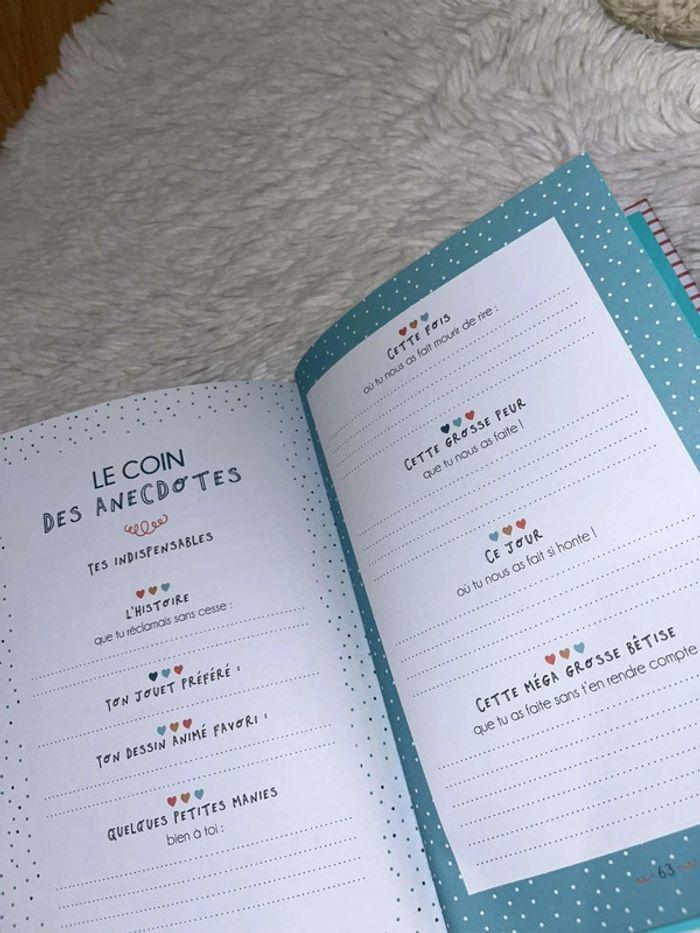 LE COIN
DES ANECDOTES
TES INDISPENSABLES
L'HISTOIRE
que tu réclamais sans cesse :
TON JOUET PRÉFÉRÉ :
TON DESSIN ANIMÉ FAVORI :
QUELQUES PETITES MANIES
bien à toi :
CETTE FOIS
où tu nous as fait mourir de rire :
CETTE GROSSE PEUR
que tu nous as faite !
CE JOUR
où tu nous as fait si honte !
CETTE MÉGA GROSSE BÊTISE
que tu as faite sans t'en rendre compte
63